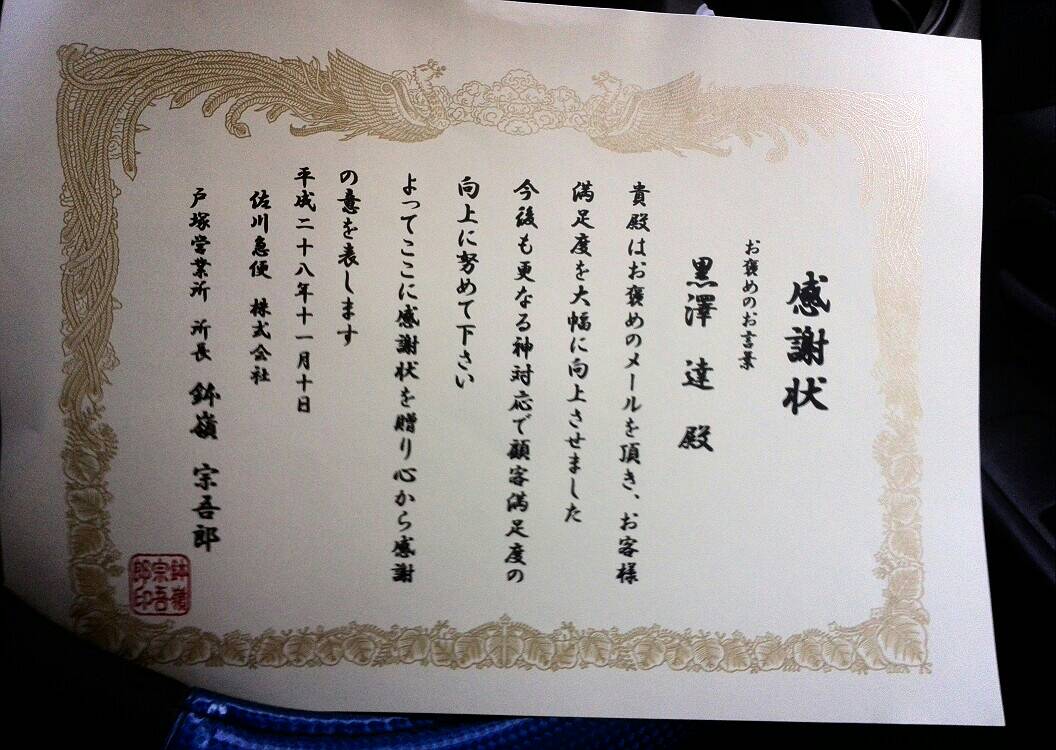 感謝状
お褒めのお言葉
黒澤 達 殿
貴殿はお褒めのメールを頂き、お客様
満足度を大幅に向上させました
今後も更なる神対応で顧客満足度の
向上に努めて下さい
よってここに感謝状を贈り心から感謝
の意を表します
平成二十八年十一月十日
佐川急便 株式会社
戸塚営業所 所長 鉢嶺 宗吾郎
鉢嶺宗吾郎印